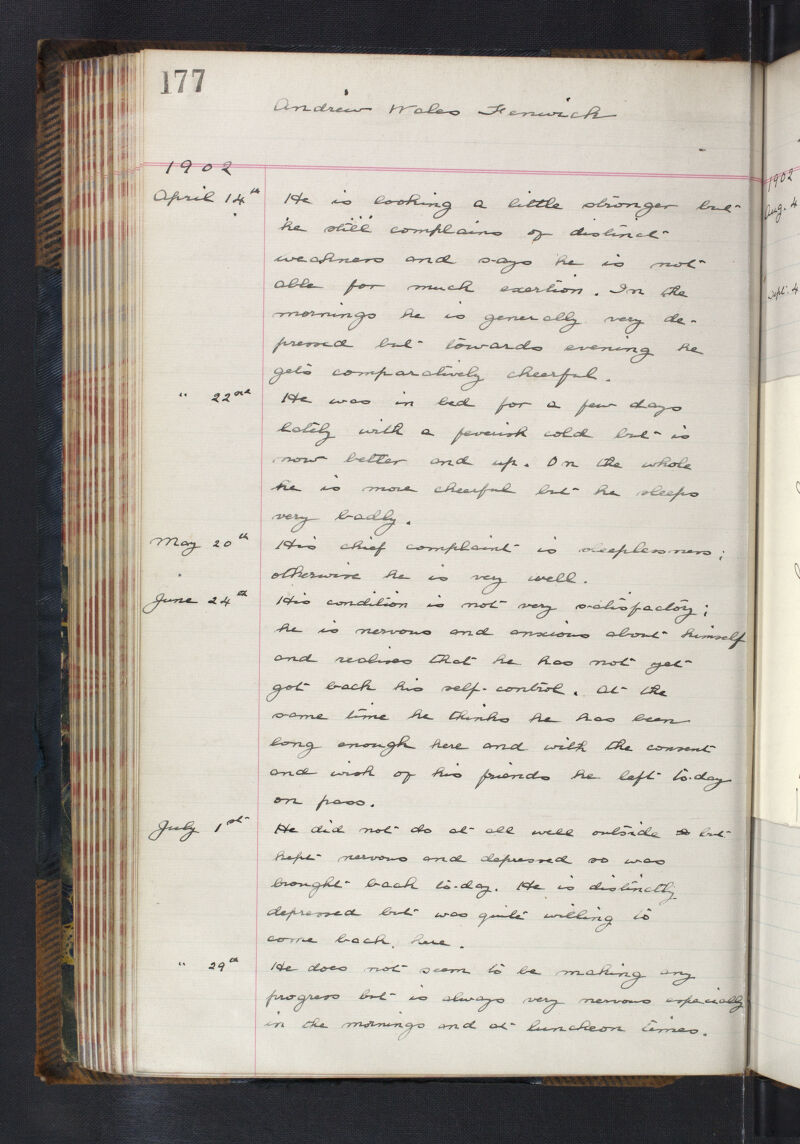 177
Andrew Wales Fenwick
1902
April 14th He is looking a little stronger but
he still complains of distinct
weakness and says he is not
able for much exertion. In the
mornings he is generally very de-
pressed but towards evening he
gets comparatively cheerful.
" 22nd He was in bed for a few days
lately with a feverish cold but is
now better and up. On the whole
he is more cheerful but he sleeps
very badly.
May 20th His chief complaint is sleeplessness;
otherwise he is very well.
June 24th His condition is not very satisfactory;
he is nervous and anxious about himself
and realises that he has not yet
got back his self-control. At the
same time he thinks he has been
long enough here and with the consent
and wish of his friends he left to-day
on pass.
July 1st He did not do at all well outside but
kept nervous and depressed so was
brought back to-day. He is distinctly
depressed but was quite willing to
come back here.
" 29th He does not seem to be making any
progress but is always very nervous especially
in the mornings and at luncheon times.
1902
Aug. 4
Sept. 4